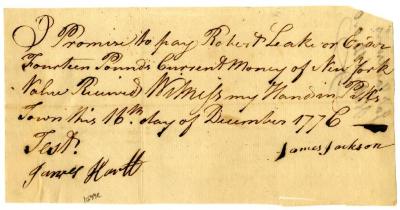 I Promise to pay Robert Leake or Order
Fourteen Pounds Current Money of New York
Value Received Witness my Hand in
Town this 16th. day of December 1776
James Jackson
Test.
James